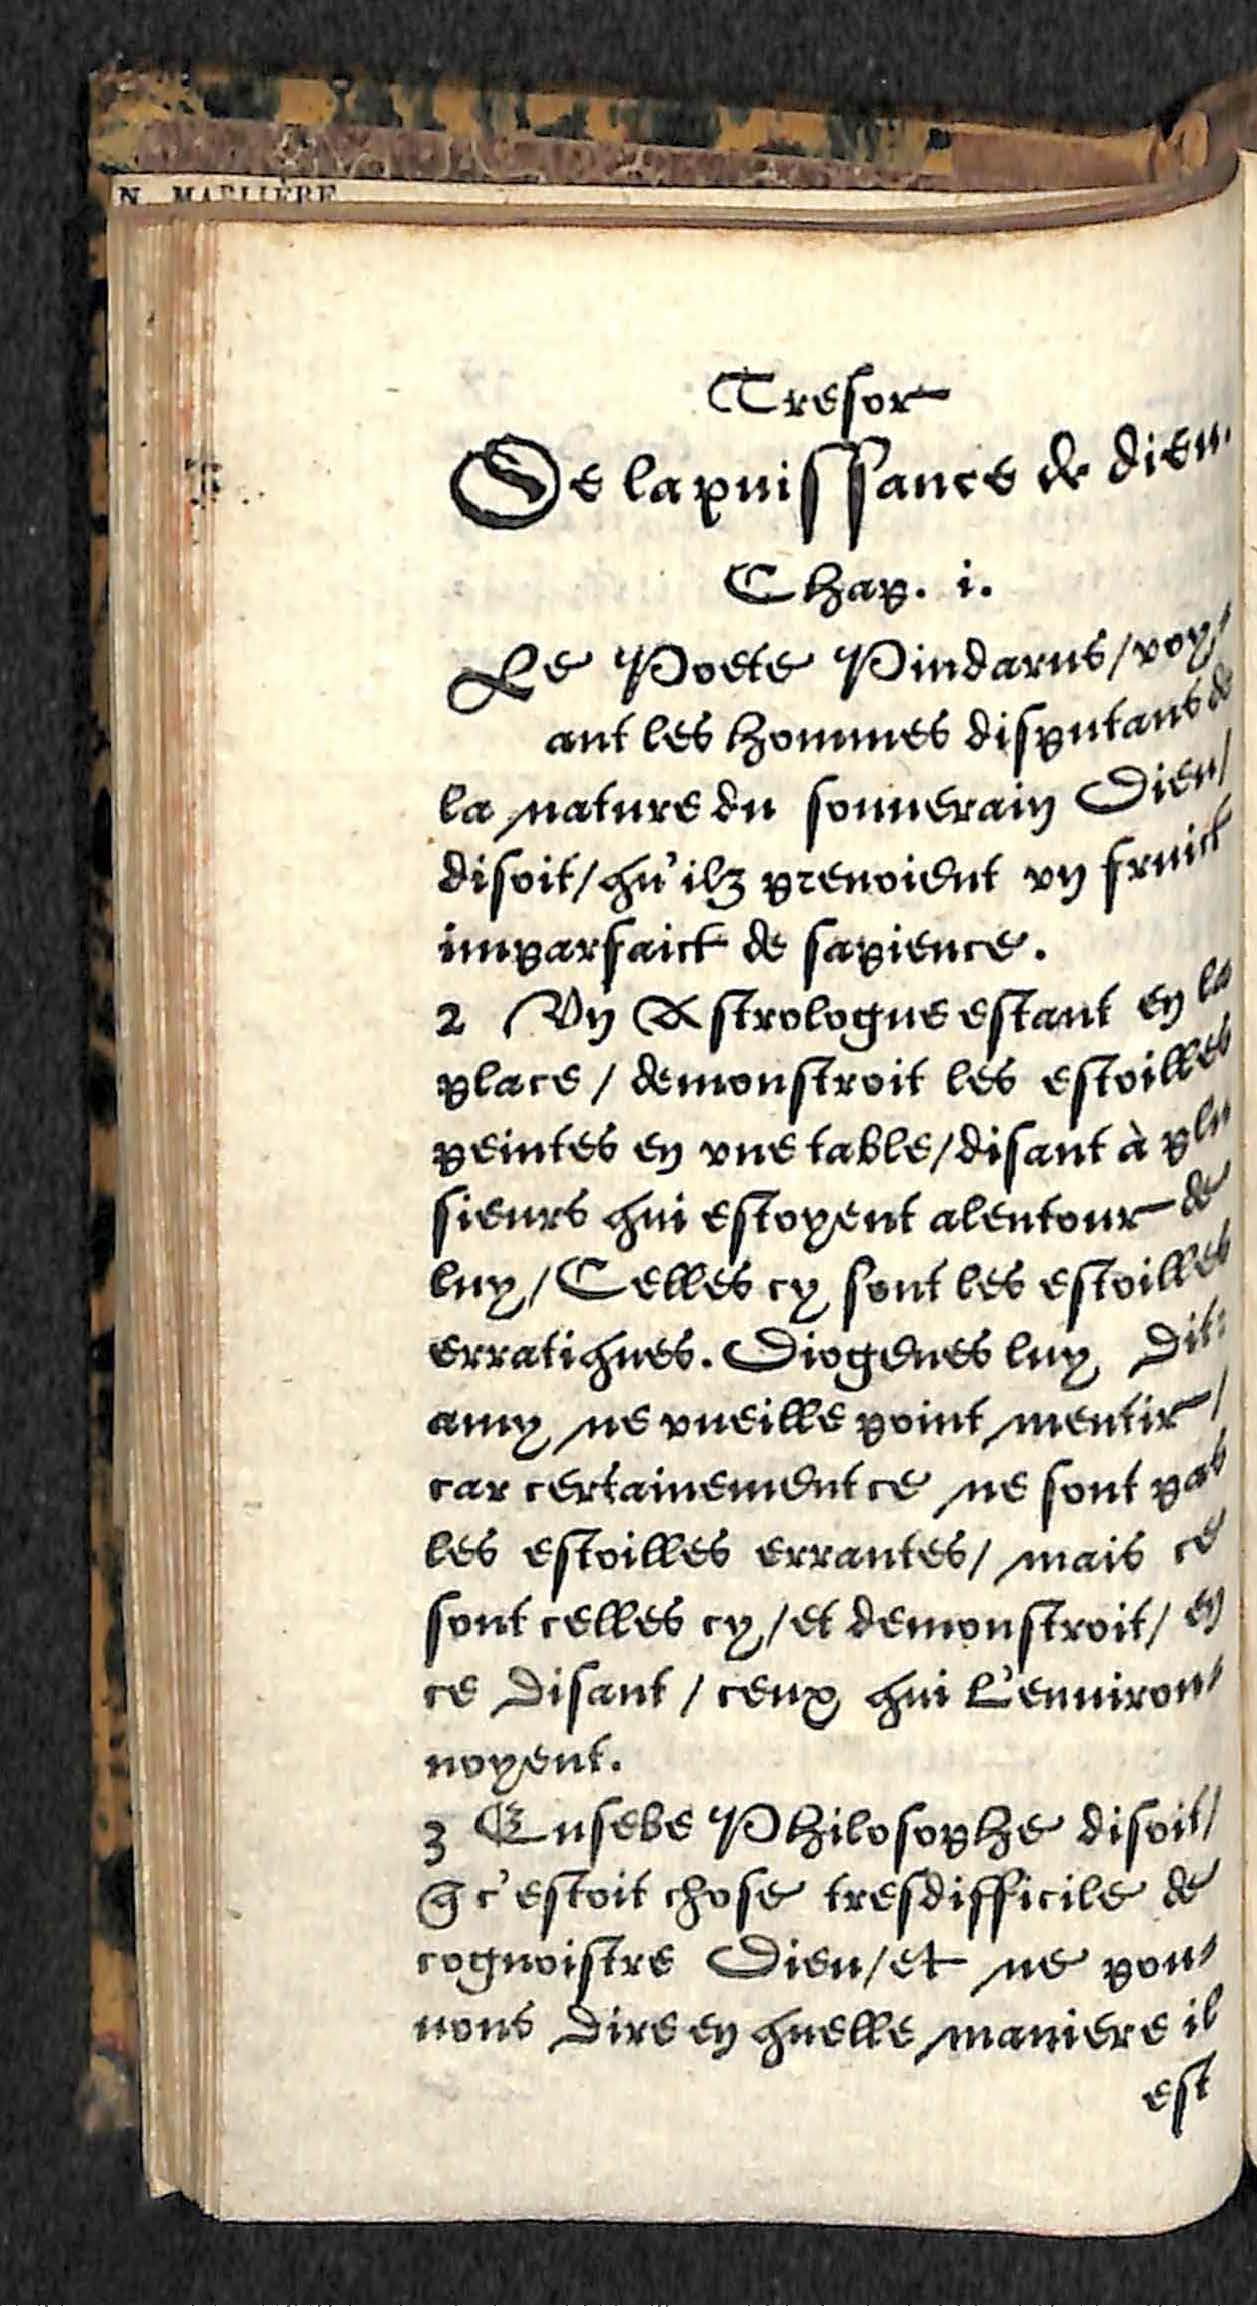 N. MARLIÈRE
Tresor
De la puissance de dieu.
Chap. i.
Le Poete Pindarus/voy⸗
ant les hommes disputans de
la nature du souuerain Dieu/
disoit/qu'ilz prenoient vn fruict
imparfaict de sapience.
2 Vn Astrologue estant en la
place / demonstroit les estoilles
peintes en vne table/disant à plu
sieurs qui estoyent alentour de
luy/Celles cy sont les estoilles
erratiques. Diogenes luy dit:
amy ne vueille point mentir/
car certainement ce ne sont pas
les estoilles errantes/ mais ce
sont celles cy/et demonstroit/ en
ce disant / ceux qui l'enuiron⸗
noyent.
3 Eusebe Philosophe disoit/
q̃ c'estoit chose tresdifficile de
cognoistre Dieu/et ne pou⸗
uons dire en quelle maniere il
est